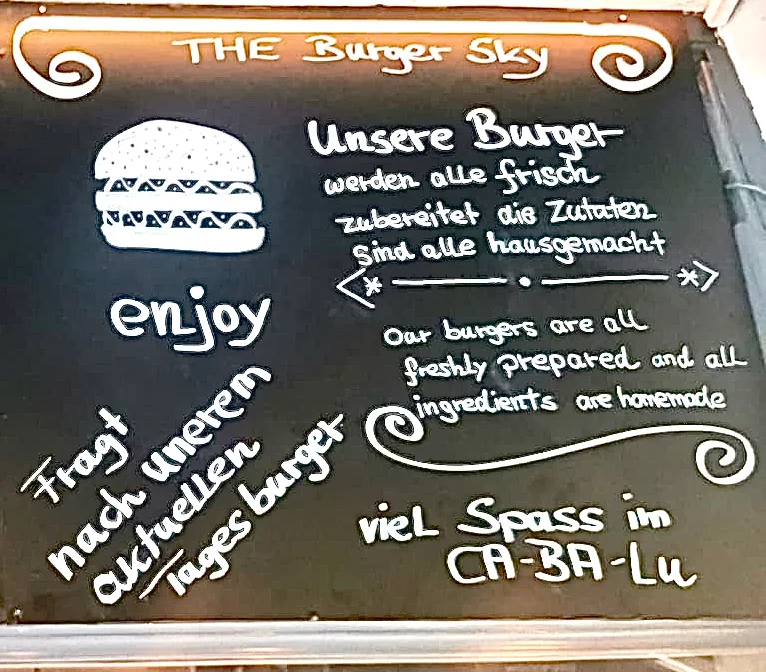 THE Burger Sky
Unsere Burger
werden alle frisch
zubereitet die Zutaten
Sind alle hausgemacht
enjoy
Our burgers are all
freshly prepared and all
ingredients are homemade
Fragt
nach unerem
aktuellen
Tages burger
viel Spass im
CA-BA-Lu